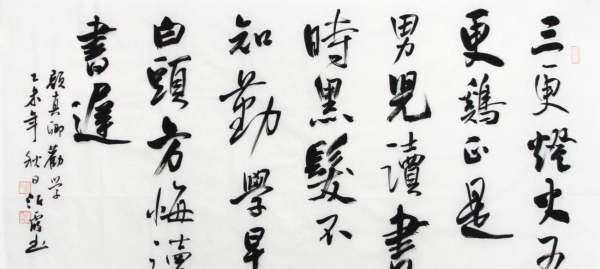 三更燈火五
更鷄正是
男兒讀書
時黑髮不
知勤學早
白頭方悔讀
書遲
顏真卿勸学
乙未年秋日